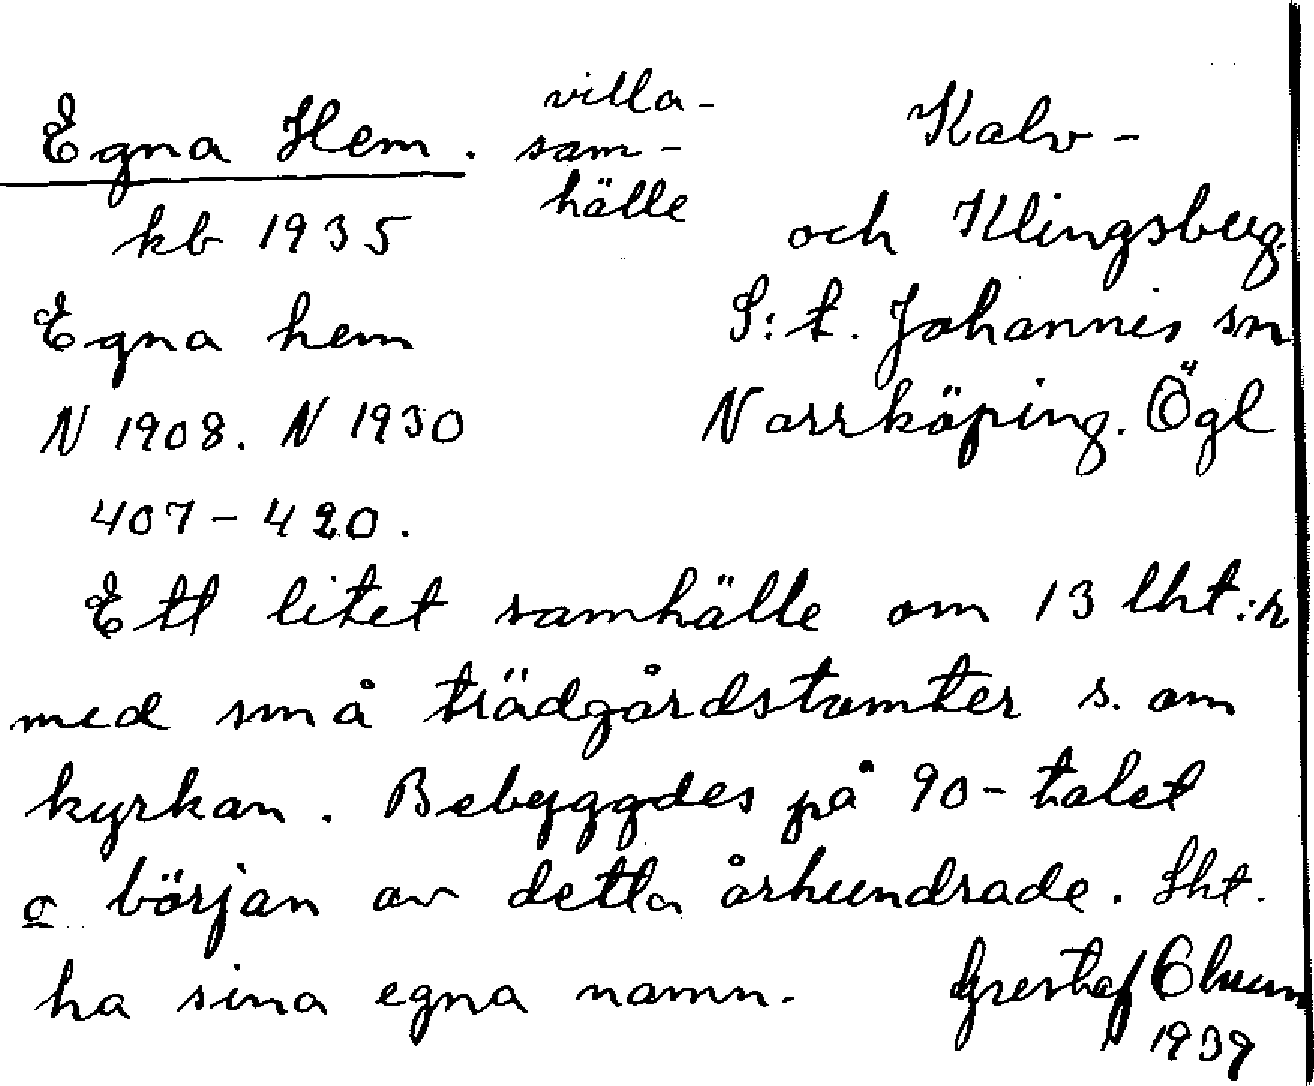 Egna Hem. villa-
sam-
hälle
kb 1935
Egna hem
N 1908. N 1930
407-420.
Kalv-
och Klingsberg.
S:t. Johannis sn
Norrköping. Ögl
Ett litet samhälle om 13 lht:r
med små trädgårdstomter s. om
kyrkan. Bebyggdes på 90-talet
o början av detta århundrade. Lht.
ha sina egna namn.
1939